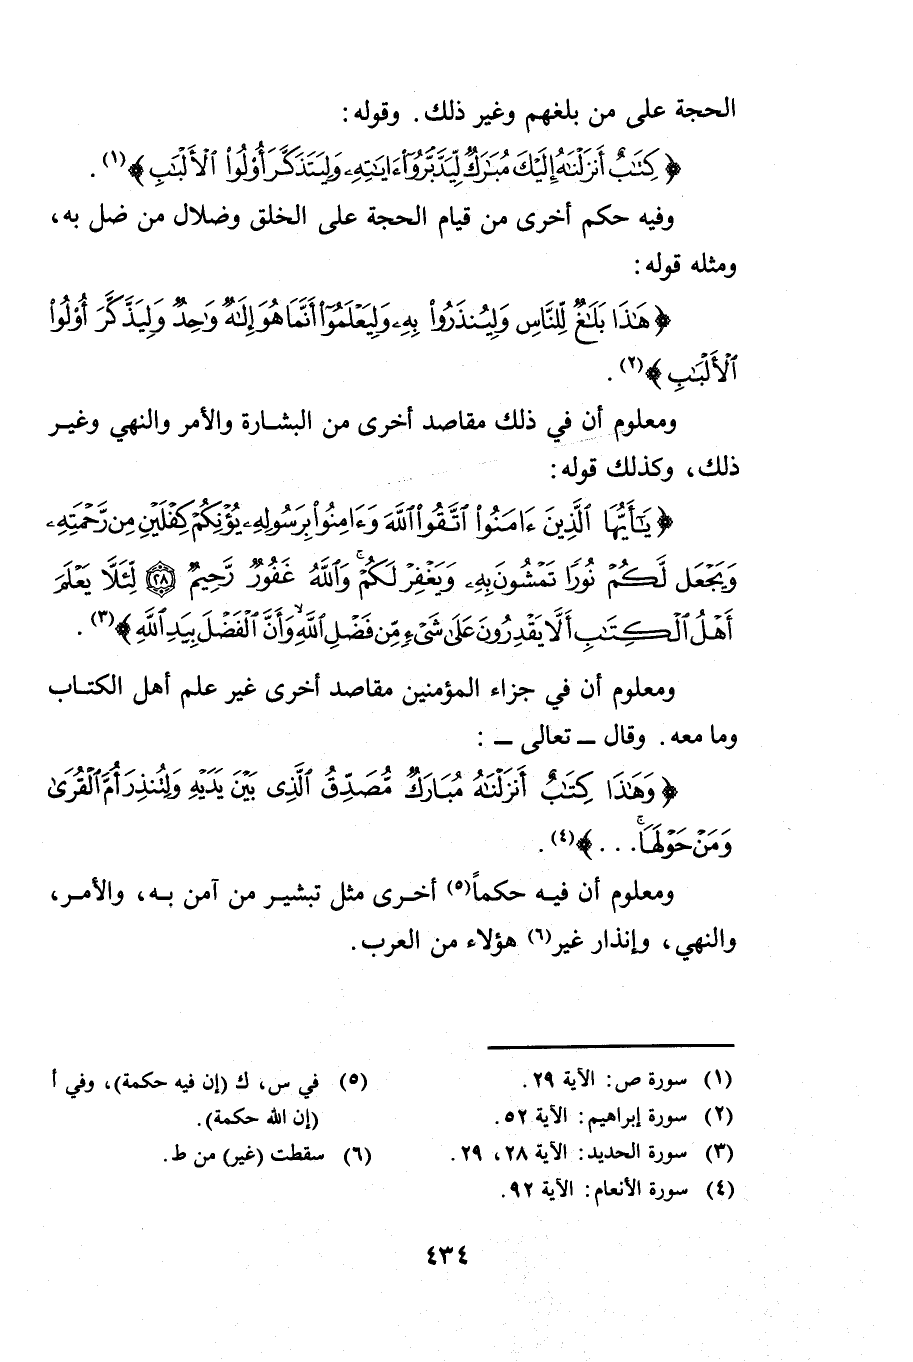 الحجة على من بلغهم وغير ذلك. وقوله:
﴿ كِتَٰبٌ أَنزَلْنَٰهُ إِلَيْكَ مُبَٰرَكٌ لِّيَدَّبَّرُوٓا۟ ءَايَٰتِهِۦ وَلِيَتَذَكَّرَ أُو۟لُوا۟ ٱلْأَلْبَٰبِ ﴾(١).
وفيه حكم أخرى من قيام الحجة على الخلق وضلال من ضل به،
ومثله قوله:
﴿ هَٰذَا بَلَٰغٌ لِّلنَّاسِ وَلِيُنذَرُوا۟ بِهِۦ وَلِيَعْلَمُوٓا۟ أَنَّمَا هُوَ إِلَٰهٌ وَٰحِدٌ وَلِيَذَّكَّرَ أُو۟لُوا۟
ٱلْأَلْبَٰبِ ﴾(٢).
ومعلوم أن في ذلك مقاصد أخرى من البشارة والأمر والنهي وغير
ذلك، وكذلك قوله:
﴿ يَٰٓأَيُّهَا ٱلَّذِينَ ءَامَنُوا۟ ٱتَّقُوا۟ ٱللَّهَ وَءَامِنُوا۟ بِرَسُولِهِۦ يُؤْتِكُمْ كِفْلَيْنِ مِن رَّحْمَتِهِۦ
وَيَجْعَل لَّكُمْ نُورًا تَمْشُونَ بِهِۦ وَيَغْفِرْ لَكُمْ ۚ وَٱللَّهُ غَفُورٌ رَّحِيمٌ ﴿٢٨﴾ لِّئَلَّا يَعْلَمَ
أَهْلُ ٱلْكِتَٰبِ أَلَّا يَقْدِرُونَ عَلَىٰ شَىْءٍ مِّن فَضْلِ ٱللَّهِ ۙ وَأَنَّ ٱلْفَضْلَ بِيَدِ ٱللَّهِ ﴾(٣).
ومعلوم أن في جزاء المؤمنين مقاصد أخرى غير علم أهل الكتاب
وما معه. وقال ــ تعالى ــ :
﴿ وَهَٰذَا كِتَٰبٌ أَنزَلْنَٰهُ مُبَارَكٌ مُّصَدِّقُ ٱلَّذِى بَيْنَ يَدَيْهِ وَلِتُنذِرَ أُمَّ ٱلْقُرَىٰ
وَمَنْ حَوْلَهَا ۚ . . . ﴾(٤).
ومعلوم أن فيه حكماً(٥) أخرى مثل تبشير من آمن به، والأمر،
والنهي، وإنذار غير(٦) هؤلاء من العرب.
(١) سورة ص: الآية ٢٩.
(٢) سورة إبراهيم: الآية ٥٢.
(٣) سورة الحديد: الآية ٢٨، ٢٩.
(٤) سورة الأنعام: الآية ٩٢.
(٥) في س، ك (إن فيه حكمة)، وفي أ
(إن الله حكمة).
(٦) سقطت (غير) من ط.
٤٣٤